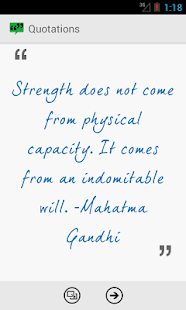 3G 1:18
Quotations
"
Strength does not come
from physical
capacity. It comes
from an indomitable
will. -Mahatma
Gandhi
"